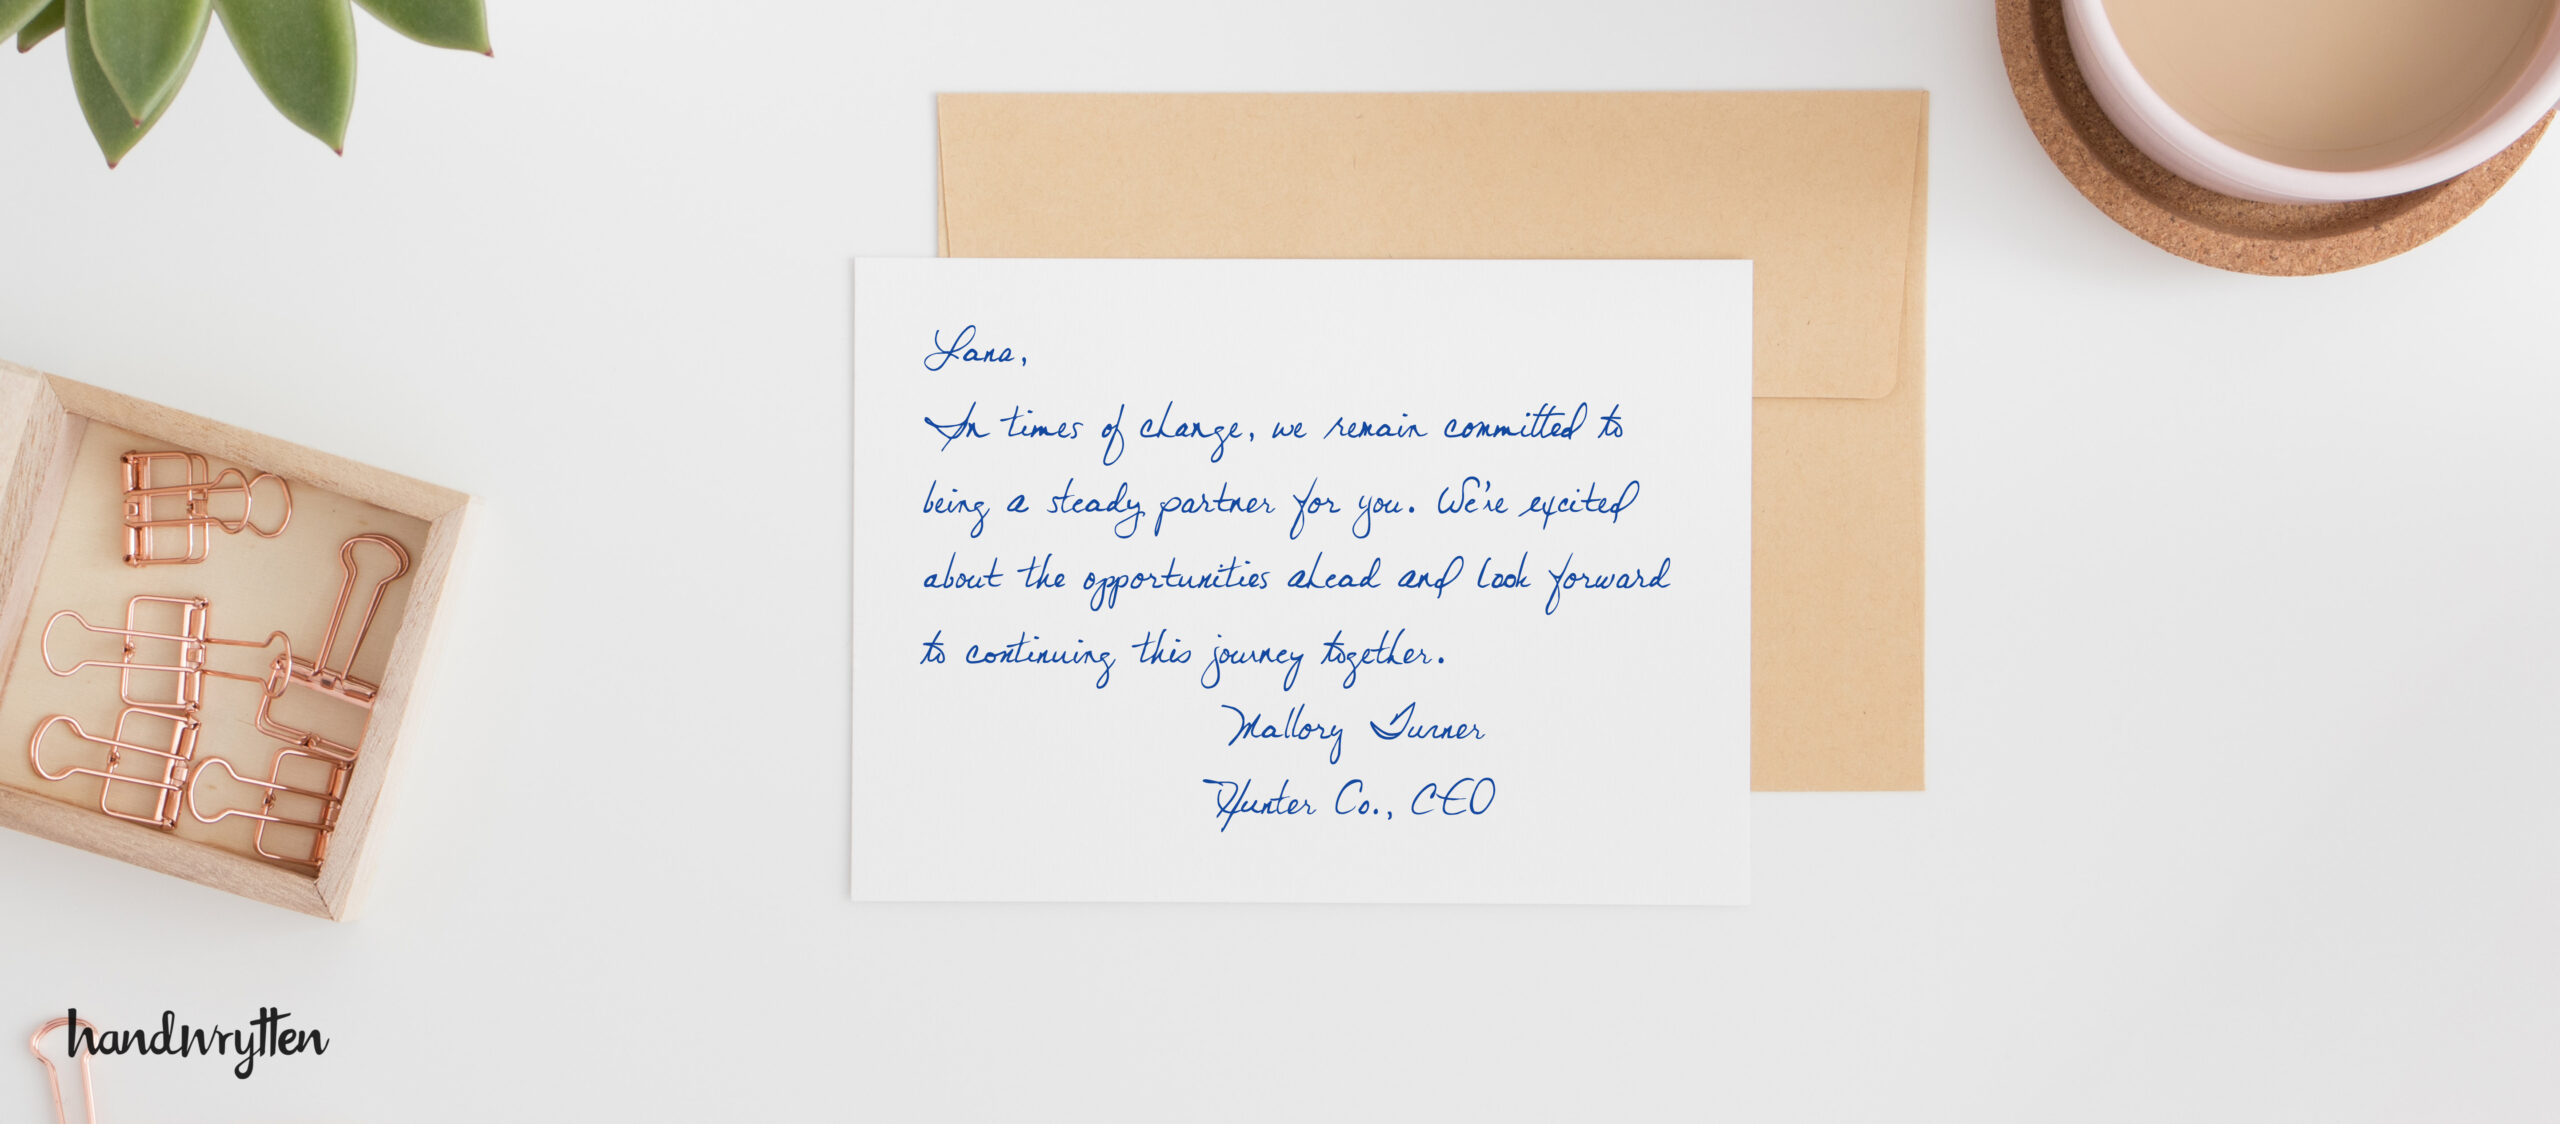 Lana,
In times of change, we remain committed to
being a steady partner for you. We're excited
about the opportunities ahead and look forward
to continuing this journey together.
Mallory Turner
Hunter Co., CEO
handwrytten